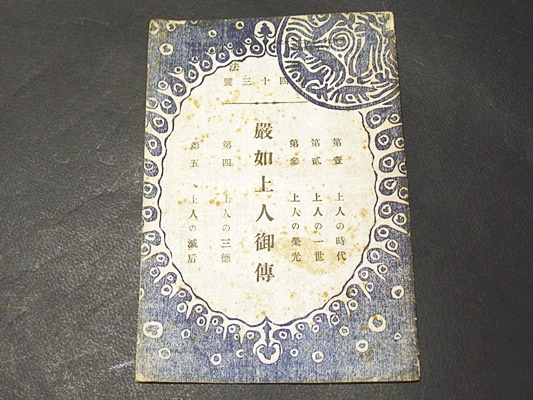 法
四十三號
第壹 上人の時代
第貳 上人の一世
第參 上人の榮光
嚴如上人御傳
第四 上人の三德
第五 上人の滅后